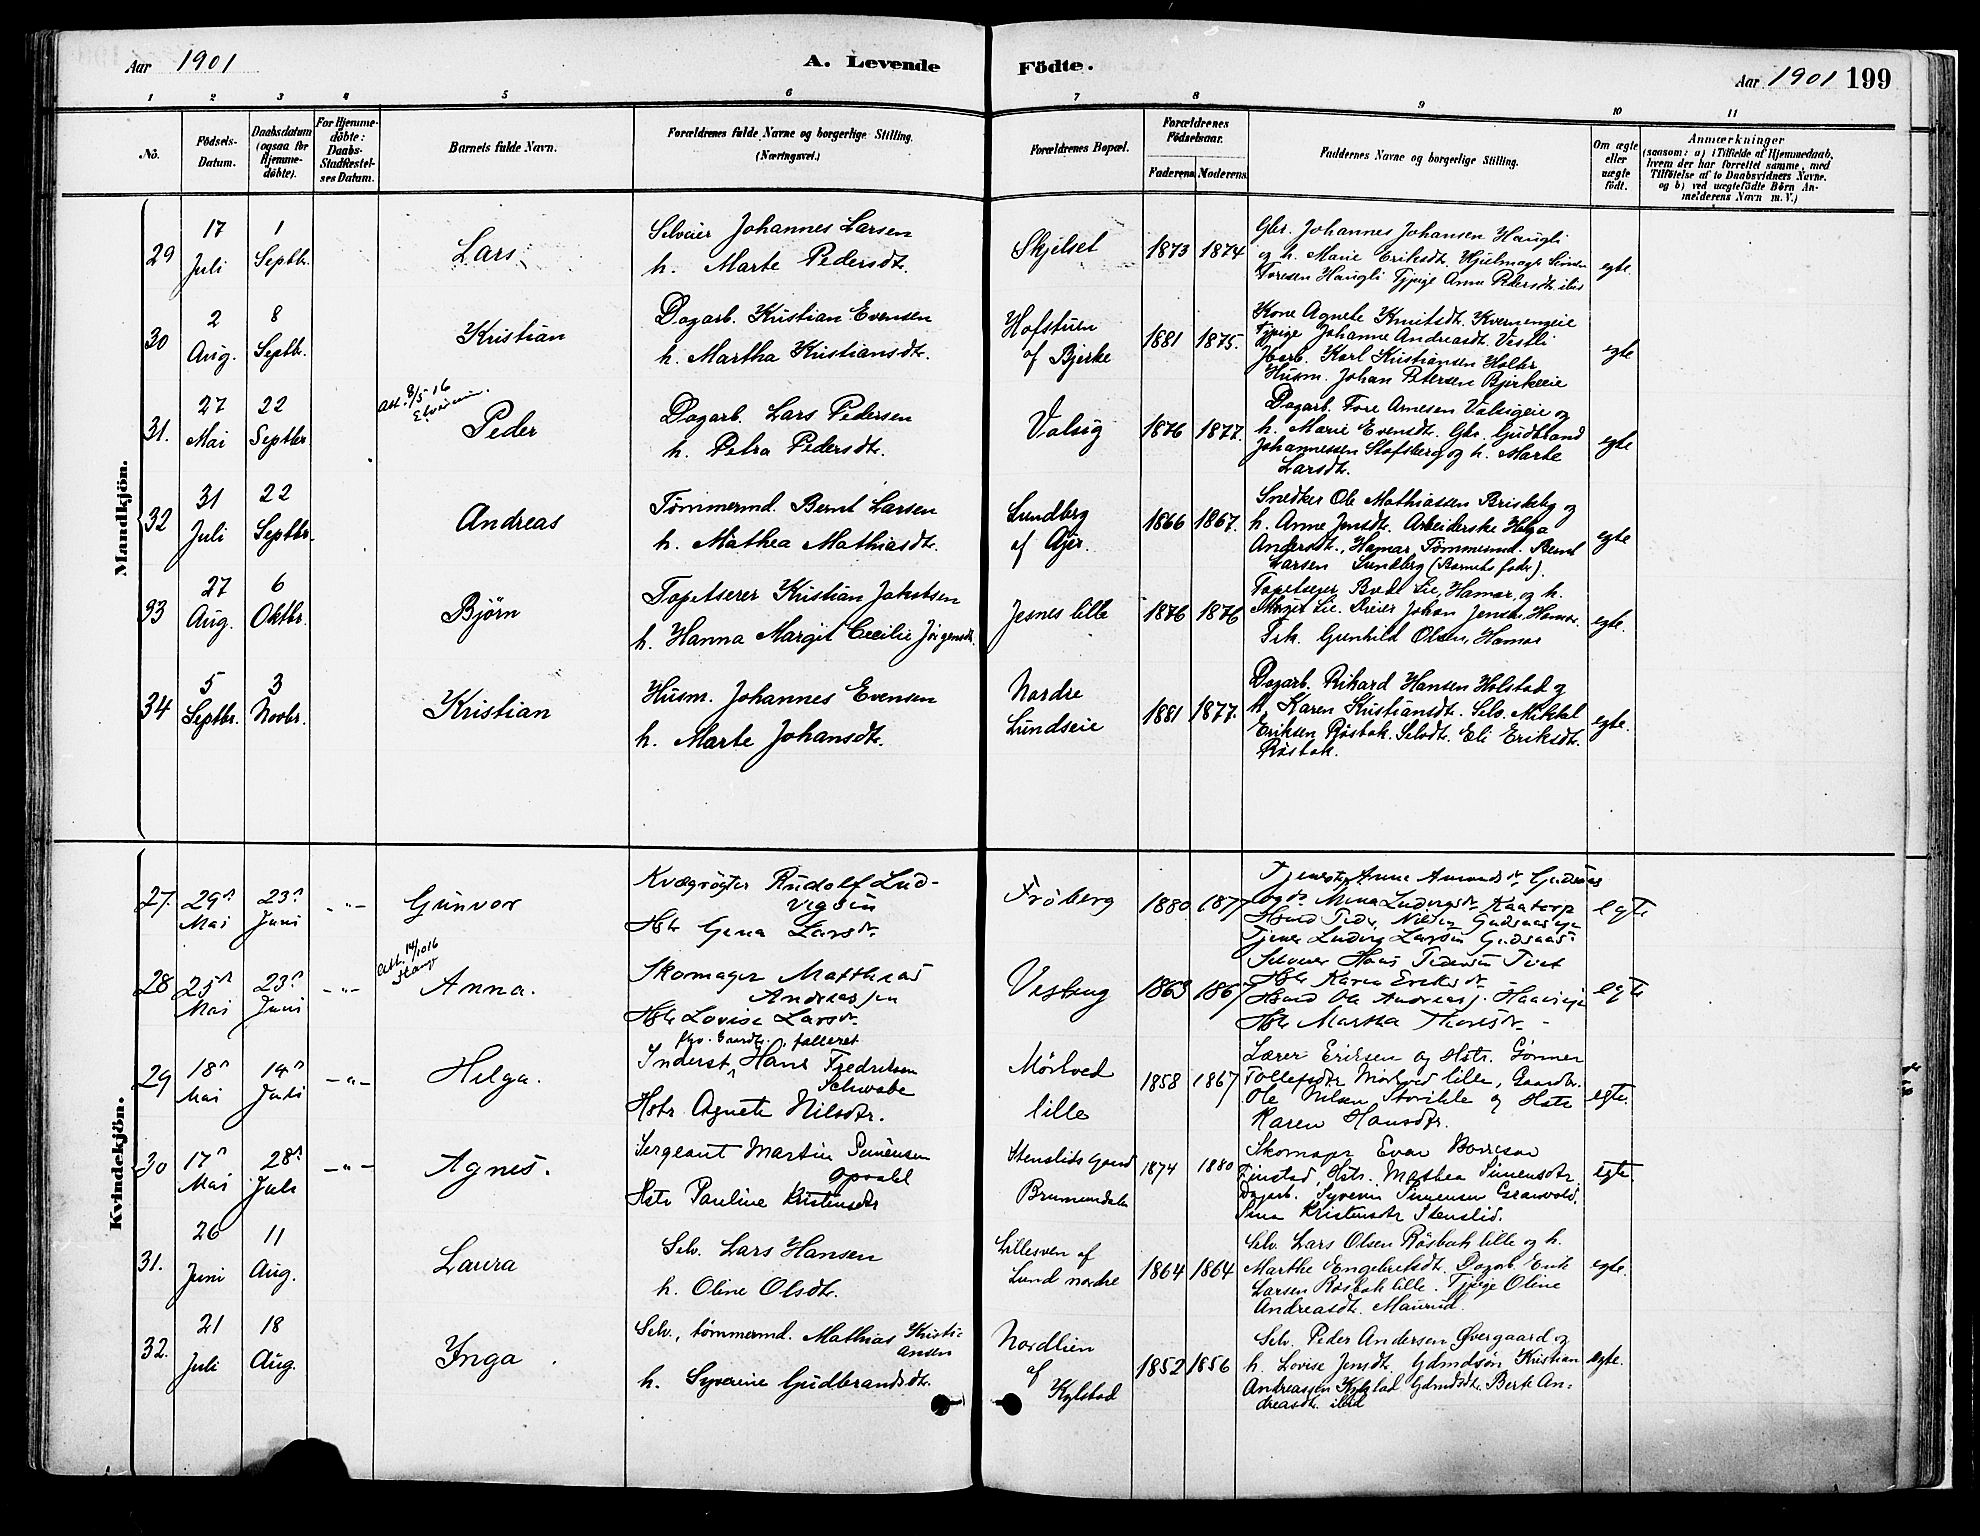 Aar 1901
A. Levende
Födte.
Aar 1901 199
1 2 3 4 5 6 7 8 9 10 11
No.
Födsels-Datum.
Daabsdatum (ogsaa for Hjemme-döbte).
For Hjemme-döbte: Daabs-Stadfæstel-ses Datum.
Barnets fulde Navn.
Forældrenes fulde Navne og borgerlige Stilling. (Næringsvei.)
Forældrenes Bopæl.
Forældrenes Födselsaar.
Faderens Moderens
Faddernes Navne og borgerlige Stilling.
Om ægte eller uægte födt.
Anmærkninger
(saasom: a) i Tilfælde af Hjemmedaab, hvem der har forrettet samme, med Tilföielse af to Daabsvidners Navne, og b) ved uægtefödte Börn An-melderens Navn m. V.)
Mandkjön.
29 17 Juli 1 Septbr. Lars
Selveier Johannes Larsen
h. Marte Pedersdt.
Skjelset 1873 1874
Gbr. Johannes Johansen Haugli
og h. Marie Eriksdt. Hjulmager
Toresen Haugli Tjpige Anne Pedersdt. ibid
egte
30 2 Aug. 8 Septbr. Kristian
Dagarb. Kristian Evensen
h. Martha Kristiansdt.
Hofstuen
af Bjerke 1881 1875.
Kone Agnete Knutsdt. Kvernengeie
Tjpige Johanne Andreasdt. Vestli
Karl Kristiansen Holter
Husm. Johan Petersen Bjerkeeie
egte
Att. 8/5 16
31. 27 Mai 22 Septbr. Peder
Dagarb. Lars Pedersen
h. Petra Pedersdt.
Valsig 1876 1877.
Dagarb. Tore Arnesen Valsigeie og
h. Marie Evensdt. Gbr. Gudbrand
Johannessen Stafsberg og h. Marte
Larsdt.
egte
32 31 Juli 22 Septbr. Andreas
Tømmermd. Bernt Larsen
h. Mathea Mathiasdt.
Lundberg
af Ajer. 1866 1867.
Snedker Ole Mathiassen Briskeby og
h. Anne Jensdt. Arbeiderske Helga
Andersdt., Hamar, Tømmermd. Bernt
Larsen Lundberg (Barnets fader).
egte
33 27 Aug. 6 Oktbr. Björn
Tapetserer Kristian Jakobsen
h. Hanna Margit Cecilie Jörgensdt.
Jesnes lille 1876 1876
Tapetserer Lie, Hamar, og h.
Margit Lie. Dreier Johan Jensen, Hamar.
Frk. Gunhild Olsen, Hamar
egte.
34 5 Septbr. 3 Novbr. Kristian
Husm. Johannes Evensen
h. Marte Johansdt.
Nordre
Lundseie 1881 1877.
Dagarb. Rikard Hansen Holstad og
h. Karen Kristiansdt. Selv. Mikkel
Eriksen Røsbak. Selvdt. Eli Eriksdt.
Røsbak.
egte.
Kvindekjön.
27. 29de Mai 23de Juni -"- Gunvor
Kvægrøgter Rudolf Lud-
vigsen
Hstr Gina Larsdtr
Frøberg 1880 1877
Anne Gudsaas
Mina Ludvigsdtr Kaatorp
Tjener Ludvig Larsen Gudsaas
egte
Att. 14/10 16
Stange
28 25de Mai 23de Juni -"- Anna.
Skomager Matthias
Andreassen
Hstr Lovise Larsdtr
Vesteng 1863 1867
Selveier Hans Pedersen Tvet
Hstr Karen Eriksdtr
Ole Andreass.
Hstr Martha Thoresdtr
egte
29 18de Mai 14de Juli -"- Helga.
fhv. Gaardbr., falleret
Inderst, Hans Fredriksen
Schwabe
Hstr. Agnete Nilsdtr.
Mörkved
lille 1858 1867
Lærer Eriksen og Hstr. Gunner
Tollefsdtr Mörkved lille, Gaardbr.
Ole Nilsen Storihle og Hstr
Karen Hansdtr.
egte.
30 17de Mai 28de Juli -"- Agnes.
Sergeant Martin Simensen
Opsahl
Hstr Pauline Kristensdtr
Stenslids Gaard
Brumunddalen 1874 1880
Skomager Even
Finstad, Hstr. Mathea Simensdtr.
Dagarb. Syvern Simensen Granvold.
Sina Kristensdtr Stenslid.
egte.
31. 26 Juni 11 Aug. Laura
Selv. Lars Hansen
h. Oline Olsdt.
Lillesven af
Lund nordre 1864 1864
Selv. Lars Olsen Røsbak lille og h.
Marthe Engebretsdt. Dagarb. Erik
Larsen Røsbak lille. Tjpige Oline
Andreasdt. Maurud.
egte.
32. 21 Juli 18 Aug. Inga
Selv., tømmermd. Mathias Kristi-
ansen
h. Syverine Gudbrandsdt.
Nordlien
af
Kylstad 1852 1856
Selv. Peder Andersen Øvergaard og
h. Lovise Jensdt. Gdmdsøn Kristian
Andreassen Kylstad Gdmdsdt. Berte An-
dreasdt. ibid
egte.